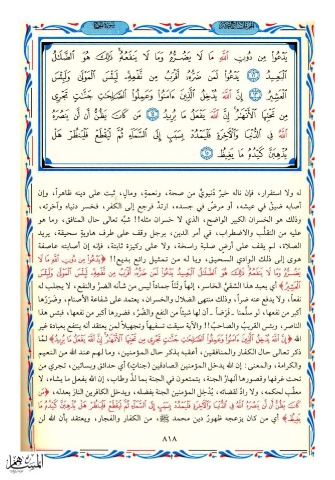 يَدْعُوا۟ مِن دُونِ ٱللَّهِ مَا لَا يَضُرُّهُۥ وَمَا لَا يَنفَعُهُۥ ذَٰلِكَ هُوَ ٱلضَّلَٰلُ
ٱلْبَعِيدُ ۝١٢ يَدْعُوا۟ لَمَن ضَرُّهُۥٓ أَقْرَبُ مِن نَّفْعِهِۦ لَبِئْسَ ٱلْمَوْلَىٰ وَلَبِئْسَ
ٱلْعَشِيرُ ۝١٣ إِنَّ ٱللَّهَ يُدْخِلُ ٱلَّذِينَ ءَامَنُوا۟ وَعَمِلُوا۟ ٱلصَّٰلِحَٰتِ جَنَّٰتٍ تَجْرِى
مِن تَحْتِهَا ٱلْأَنْهَٰرُ إِنَّ ٱللَّهَ يَفْعَلُ مَا يُرِيدُ ۝١٤ مَن كَانَ يَظُنُّ أَن لَّن يَنصُرَهُ
ٱللَّهُ فِى ٱلدُّنْيَا وَٱلْءَاخِرَةِ فَلْيَمْدُدْ بِسَبَبٍ إِلَى ٱلسَّمَآءِ ثُمَّ لْيَقْطَعْ فَلْيَنظُرْ هَلْ
يُذْهِبَنَّ كَيْدُهُۥ مَا يَغِيظُ ۝١٥
له ولا استقرار، فإن ناله خيرٌ دُنيويٌّ من صحة، ونعمةٍ، ومالٍ، ثبت على دينه ظاهراً، وإن
أصابه ضيقٌ في عيشه، أو مرضٌ في جسده، ارتدَّ فرجع إلى الكفر، فخسر دنياه وآخرته،
وذلك هو الخسران الكبير الواضح، الذي لا خسران مثله!! شبَّه تعالى حال المنافق، وما هو
عليه من التقلُّب والاضطراب، في أمر الدين، برجل وقف على طرف هاويةٍ سحيقة، يريد
الصلاة، لم يقف على أرضٍ صلبة راسخة، ولا على ركيزة ثابتة، فإنه إن أصابته عاصفة
هوى إلى ذلك الوادي السحيق، ويا له من تمثيل رائع بديع!! ﴿يَدْعُوا مِن دُونِ اللَّهِ مَا لَا
يَضُرُّهُ وَمَا لَا يَنفَعُهُ ذَلِكَ هُوَ الضَّلَالُ الْبَعِيدُ يَدْعُوا لَمَن ضَرُّهُ أَقْرَبُ مِن نَّفْعِهِ لَبِئْسَ الْمَوْلَى وَلَبِئْسَ
الْعَشِيرُ﴾ أي يعبد هذا الشقيُّ الخاسر، إلهاً وثناً جماداً ليس من شأنه الضرُّ والنفع، لا يجلب له
نفعاً، ولا يدفع عنه ضراً، وذلك منتهى الضلال والخسران، يعتمد على شفاعة الأصنام، وضررُها
أكبر من نفعها، لو سلَّمنا ـ فرضاً ـ أن لها شيئاً من النفع والضُرِّ، فضررها أكبر من نفعها، فبئس هذا
الناصر، وبئس القريبُ والصاحبُ!! والآية سيقت تسفيهاً وتجهيلاً لمن يعتقد أنه ينتفع بعبادة غير
الله ﴿إِنَّ اللَّهَ يُدْخِلُ الَّذِينَ آمَنُوا وَعَمِلُوا الصَّالِحَاتِ جَنَّاتٍ تَجْرِي مِن تَحْتِهَا الْأَنْهَارُ إِنَّ اللَّهَ يَفْعَلُ مَا يُرِيدُ﴾ لمَّا
ذكر تعالى حال الكفار والمنافقين، أعقبه بذكر حال المؤمنين، وما لهم عند الله من النعيم
والكرامة، والمعنى: إن الله يدخل المؤمنين الصادقين (جنات) أي حدائق وبساتين، تجري من
تحت غرفها وقصورها أنهارُ الجنة، يتمتعون في الجنة بما لذَّ وطاب، إن الله يفعل ما يشاء، لا
معقِّب لحكمه، ولا رادَّ لقضائه، يُدْخِل المؤمنين الجنة بفضله، ويدخل الكافرين النارَ بعدله، ﴿مَن
كَانَ يَظُنُّ أَن لَّن يَنصُرَهُ اللَّهُ فِي الدُّنْيَا وَالْآخِرَةِ فَلْيَمْدُدْ بِسَبَبٍ إِلَى السَّمَاءِ ثُمَّ لْيَقْطَعْ فَلْيَنظُرْ هَلْ يُذْهِبَنَّ كَيْدُهُ مَا
يَغِيظُ﴾ أي من كان يزعجه ظهورُ دين محمد ﷺ، من الكفار والفجار، ويعتقد بأن الله لن
٨١٨